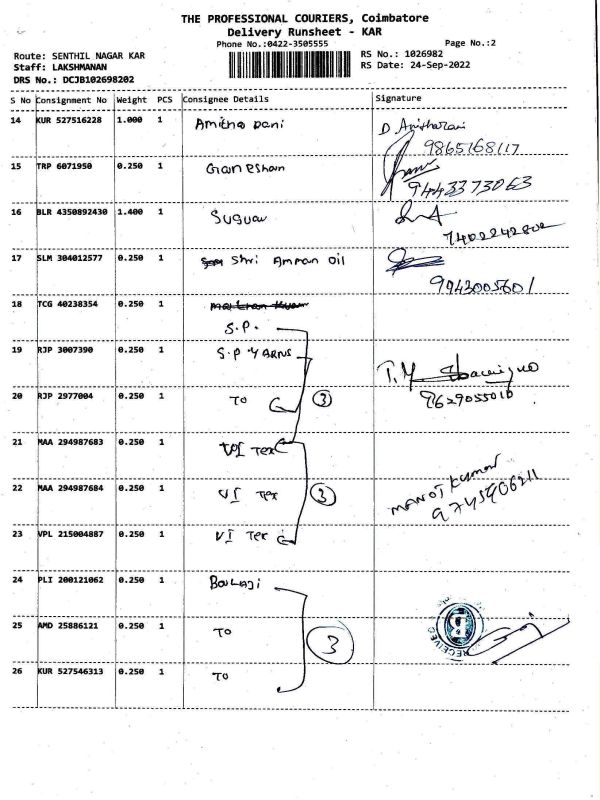 THE PROFESSIONAL COURIERS, Coimbatore
Delivery Runsheet - KAR
Phone No.:0422-3505555
Page No.:2
Route: SENTHIL NAGAR KAR
RS No.: 1026982
Staff: LAKSHMANAN
RS Date: 24-Sep-2022
DRS No.: DCJB102698202
S No Consignment No Weight PCS Consignee Details Signature
14 KUR 527516228 1.000 1 D
9865168117
15 TRP 6071950 0.250 1 Ganeshan
9443373063
16 BLR 4350892430 1.400 1
17 SLM 304012577 0.250 1 Shri Amman Oil
9943005601
18 TCG 40238354 0.250 1
S.P.
19 RJP 3007390 0.250 1 S.P YARNS
T.M
20 RJP 2977004 0.250 1 TO 3 9629055010
21 MAA 294987683 0.250 1 VI Tex
22 MAA 294987684 0.250 1 VI Tex 3 MANOJ Kumar
9745906211
23 VPL 215004887 0.250 1 VI Tex
24 PLI 200121062 0.250 1 Balaji
25 AMD 25886121 0.250 1 TO 3 RECEIVED
26 KUR 527546313 0.250 1 TO